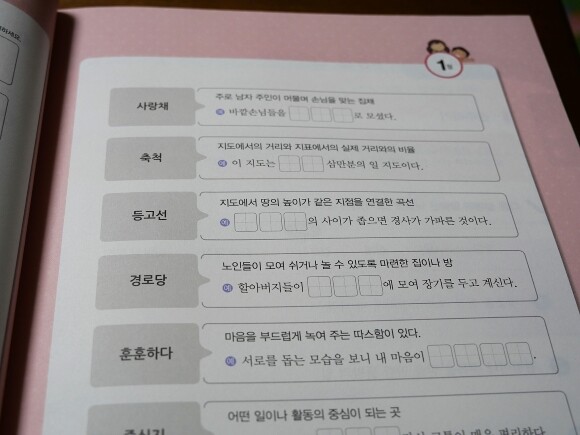 1
사랑채
주로 남자 주인이 머물며 손님을 맞는 집채
예 바깥손님들을 로 모셨다.
축척
지도에서의 거리와 지표에서의 실제 거리와의 비율
예 이 지도는 삼만분의 일 지도이다.
등고선
지도에서 땅의 높이가 같은 지점을 연결한 곡선
예 의 사이가 좁으면 경사가 가파른 것이다.
경로당
노인들이 모여 쉬거나 놀 수 있도록 마련한 집이나 방
예 할아버지들이 에 모여 장기를 두고 계신다.
훈훈하다
마음을 부드럽게 녹여 주는 따스함이 있다.
예 서로를 돕는 모습을 보니 내 마음이 .
중심지
어떤 일이나 활동의 중심이 되는 곳
교통이 매우 편리하다.